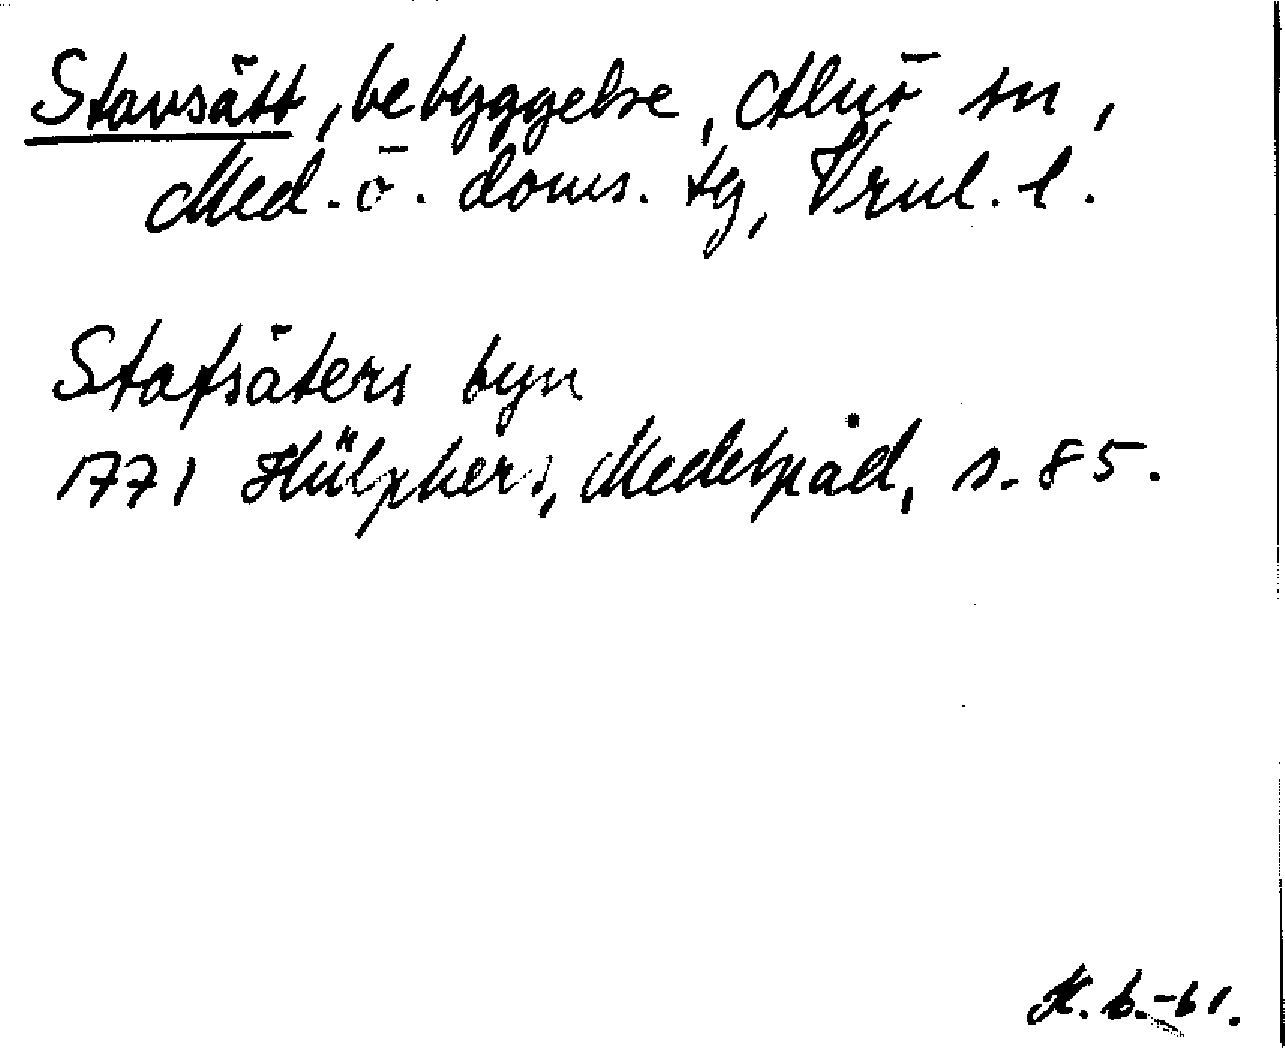 Stavsätt, bebyggelse, Alnö sn,
Med. ö. doms. tg, Vrnl. l.
Stafsäters byn
1771 Hülphers, Medelpad, s. 85.
H. b.-61.